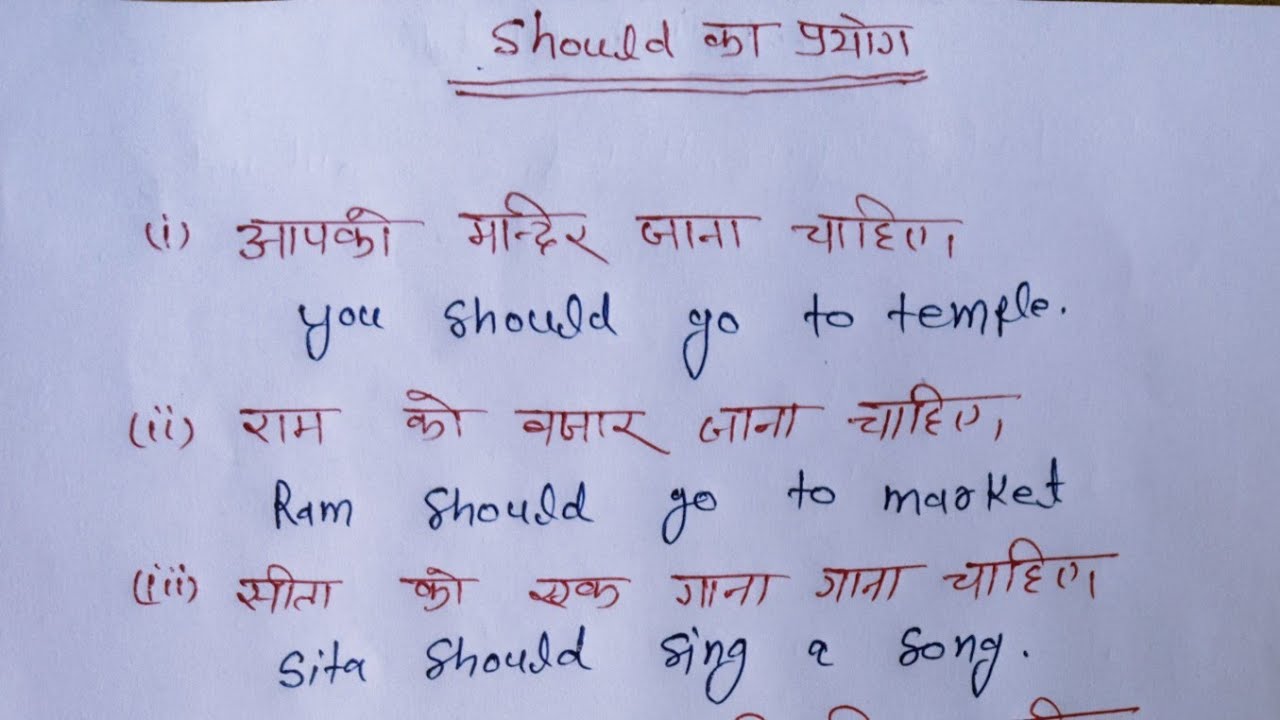 Should का प्रयोग
(i) आपको मन्दिर जाना चाहिए।
you should go to temple.
(ii) राम को बजार जाना चाहिए।
Ram should go to market
(iii) सीता को एक गाना गाना चाहिए।
Sita should sing a song.